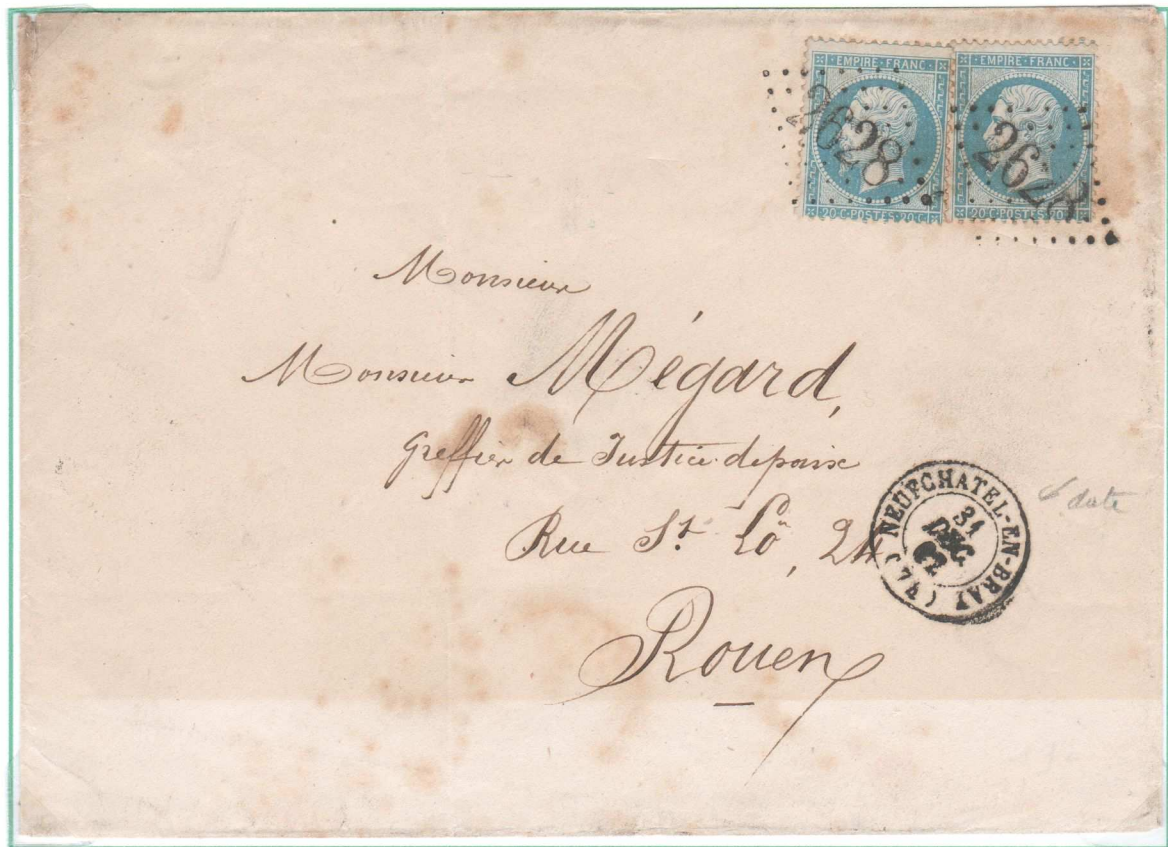 EMPIRE·FRANC·
20 C·POSTES·20 C·
2628
EMPIRE·FRANC·
20 C·POSTES·20
2628
Monsieur
Monsieur Mégard,
greffier de Justice de paix
Rue St. Lô, 24
Rouen
NEUFCHATEL-EN-BRAY (74)
31
DEC
62
date